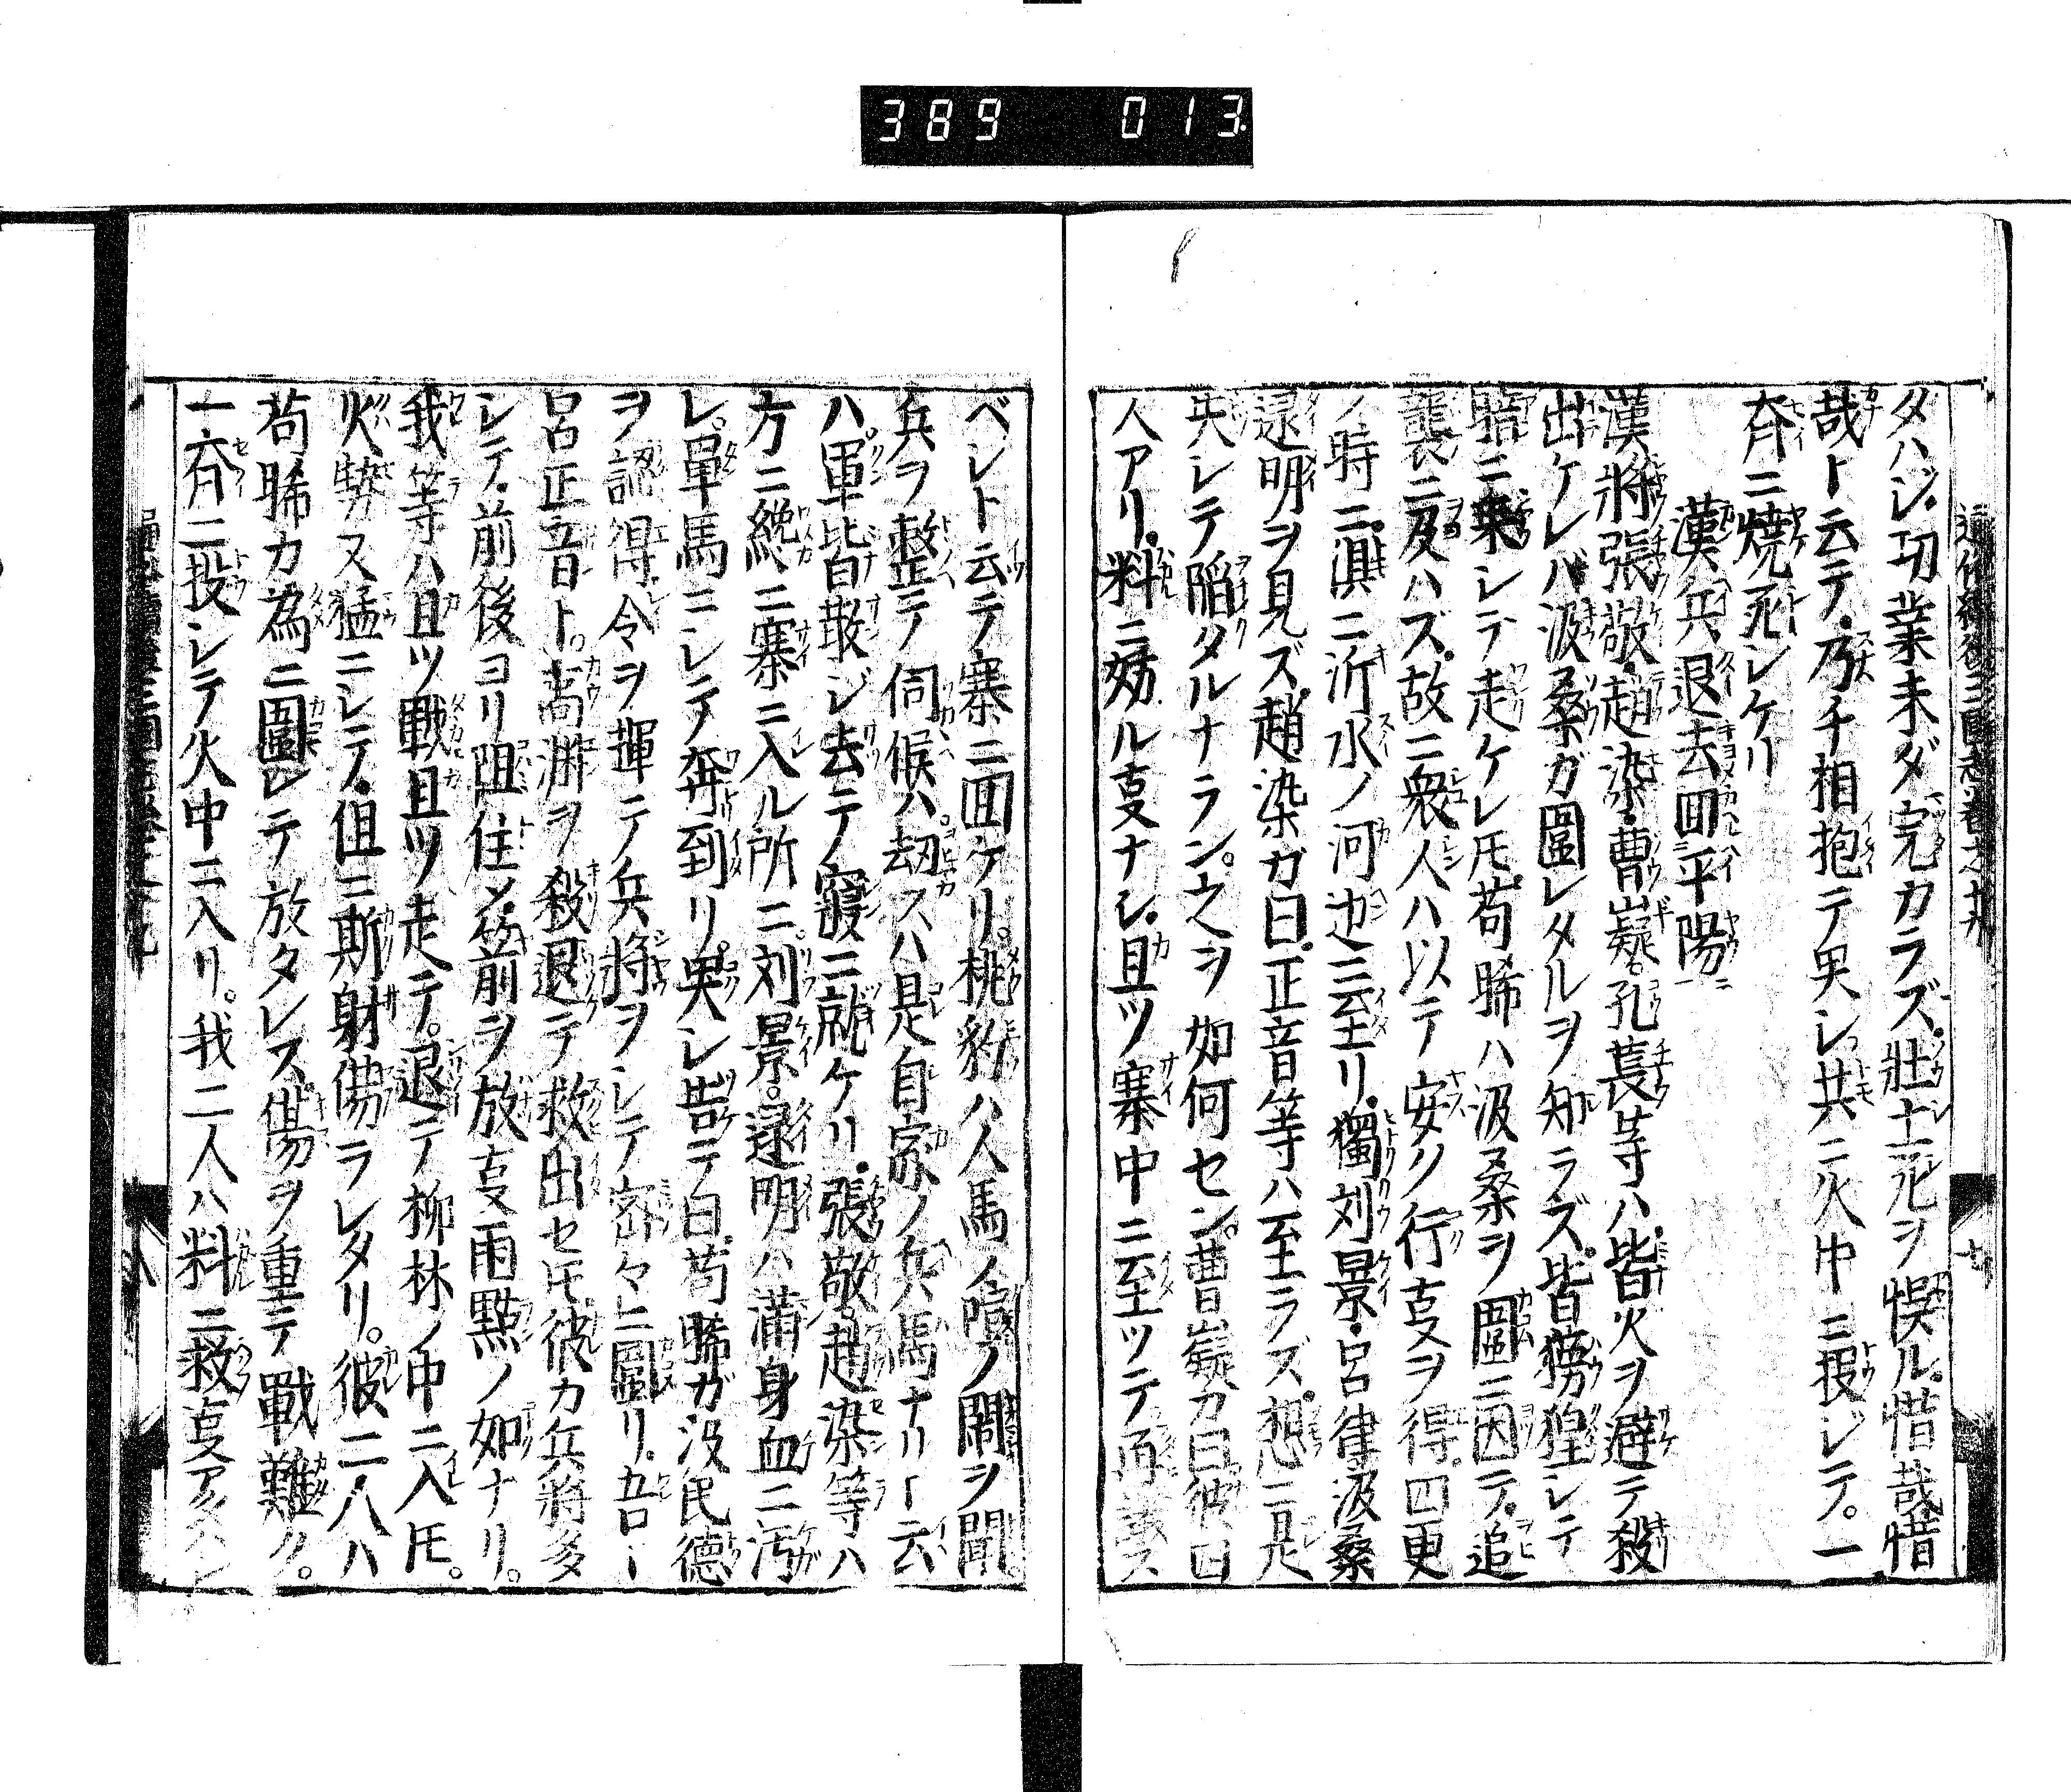 389 013.
タハジ。功業未ダ完カラズ。壯士死ヲ悞ル。惜哉惜
哉ト云テ。乃チ相抱テ哭シ共ニ火中ニ投ジテ。一
夼ニ燒死シケリ
漢兵退去囬平陽
漢將張敬。趙染。曹嶷。孔萇等ハ。皆火ヲ避テ殺
出ケレバ汲桑ガ圍レタルヲ知ラズ。皆獝猩シテ
暗ニ乗シテ走ケレ𪜈。苟晞ハ汲桑ヲ圍ニ因テ。追
襲ニ及ハズ。故ニ衆人ハ以テ安ク行㕝ヲ得。四更
ノ時ニ。俱ニ沂水ノ河邉ニ至リ。獨刘景。呂律汲桑
逯明ヲ見ズ。趙染ガ曰。正音等ハ至ラズ。想ニ是
失シテ陷タルナラン。之ヲ如何セン。曹嶷カ曰彼四
人アリ。料ニ妨ル㕝ナシ。且ツ寨中ニ至ッテ再議ス
ベシト云テ寨ニ囬ケリ。桃豹ハ人馬ノ喧ノ鬧ヲ聞。
兵ヲ整テ伺候ハ。刼スハ是自家ノ兵馬ナリト云
ハ。軍皆散ジ去テ寢ニ就ケリ。張敬。趙染等ハ
方ニ纔ニ寨ニ入ル所ニ。刘景。逯明ハ滿身血ニ汚
レ。單馬ニシテ奔到リ。哭シ告テ曰。苟晞ガ汲民德
ヲ認得。令ヲ揮テ兵將ヲシテ密々ニ圍リ。吾ト
呂正音ト。髙渊ヲ殺退テ救出セ𪜈彼カ兵將多
シテ。前後ヨリ阻住メ。箭ヲ放㕝雨㸃ノ如ナリ。
我等ハ且ツ戰且ツ走テ。退テ柳林ノ中ニ入𪜈。
火勢又猛ニシテ。俱ニ斯射傷ラレタリ。彼二人ハ
苟晞カ為ニ圍レテ放タレス。傷ヲ重テ戰難ク。
一夼ニ投シテ火中ニ入リ。我二人ハ料ニ救㕝アタハシ